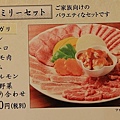 ミリーセット
ご家族向けの
バラエティなセットです
ガリ
ン
ーロ
モ肉
コ
ルモン
野菜
り合わせ
0円(税別)